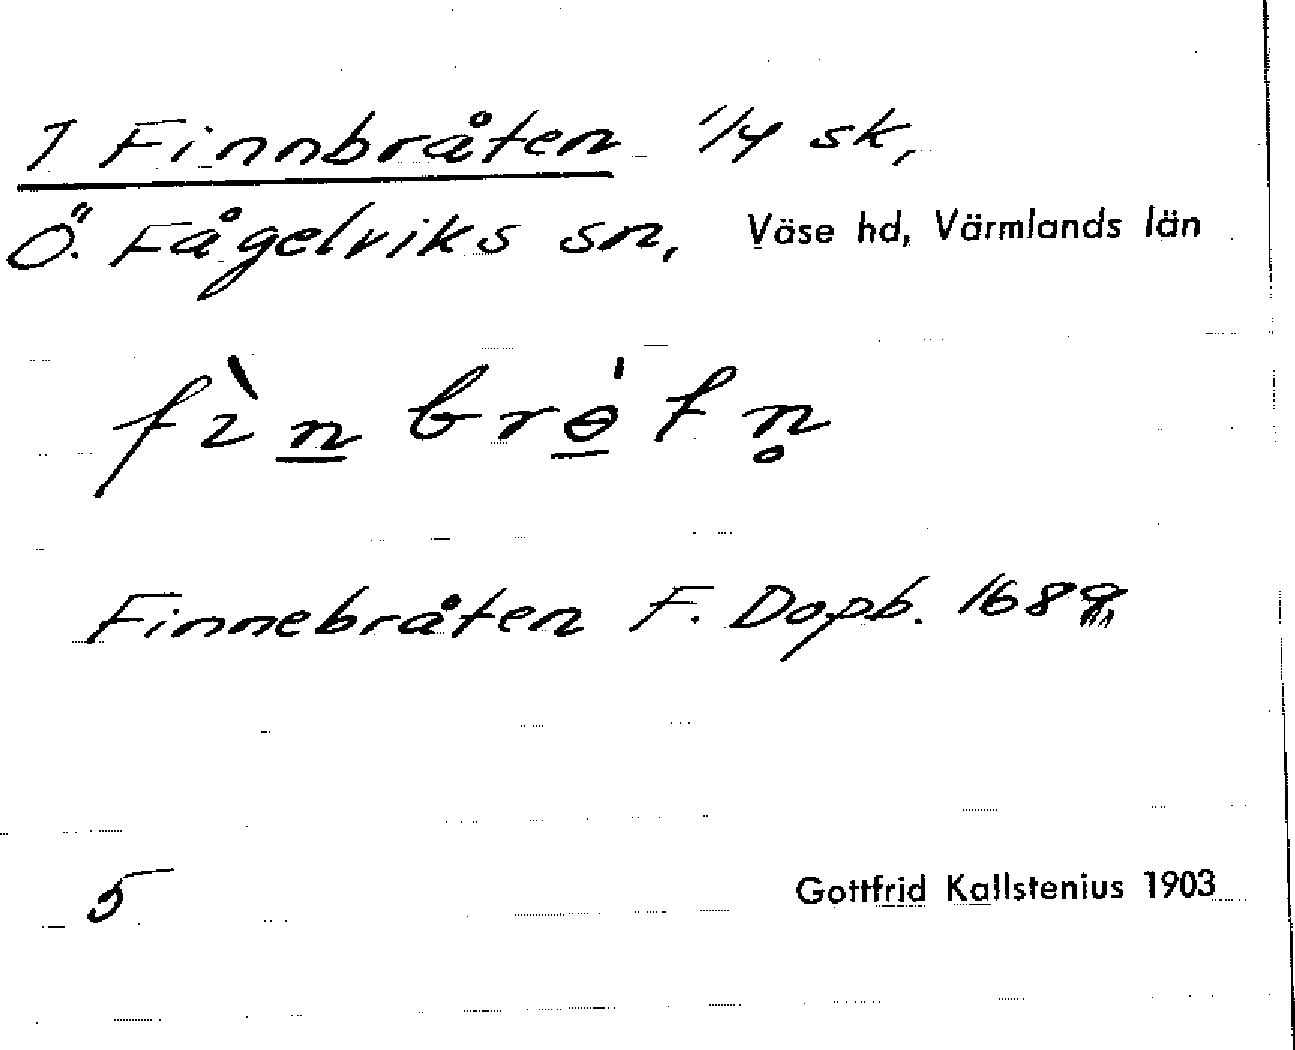 1 Finnbråten 1/4 sk,
Ö. Fågelviks sn, Väse hd, Värmlands län
fìn brɵ́tn̥
Finnebråten F. Dopb. 1689
5
Gottfrid Kallstenius 1903